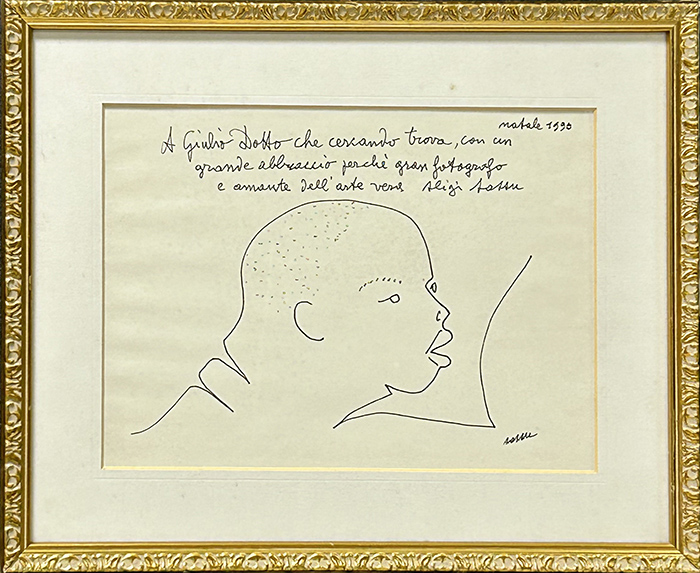 natale 1990
A Giulio Dotto che cercando trova, con un
grande abbraccio perchè gran fotografo
e amante dell'arte vera Aligi Sassu
sassu